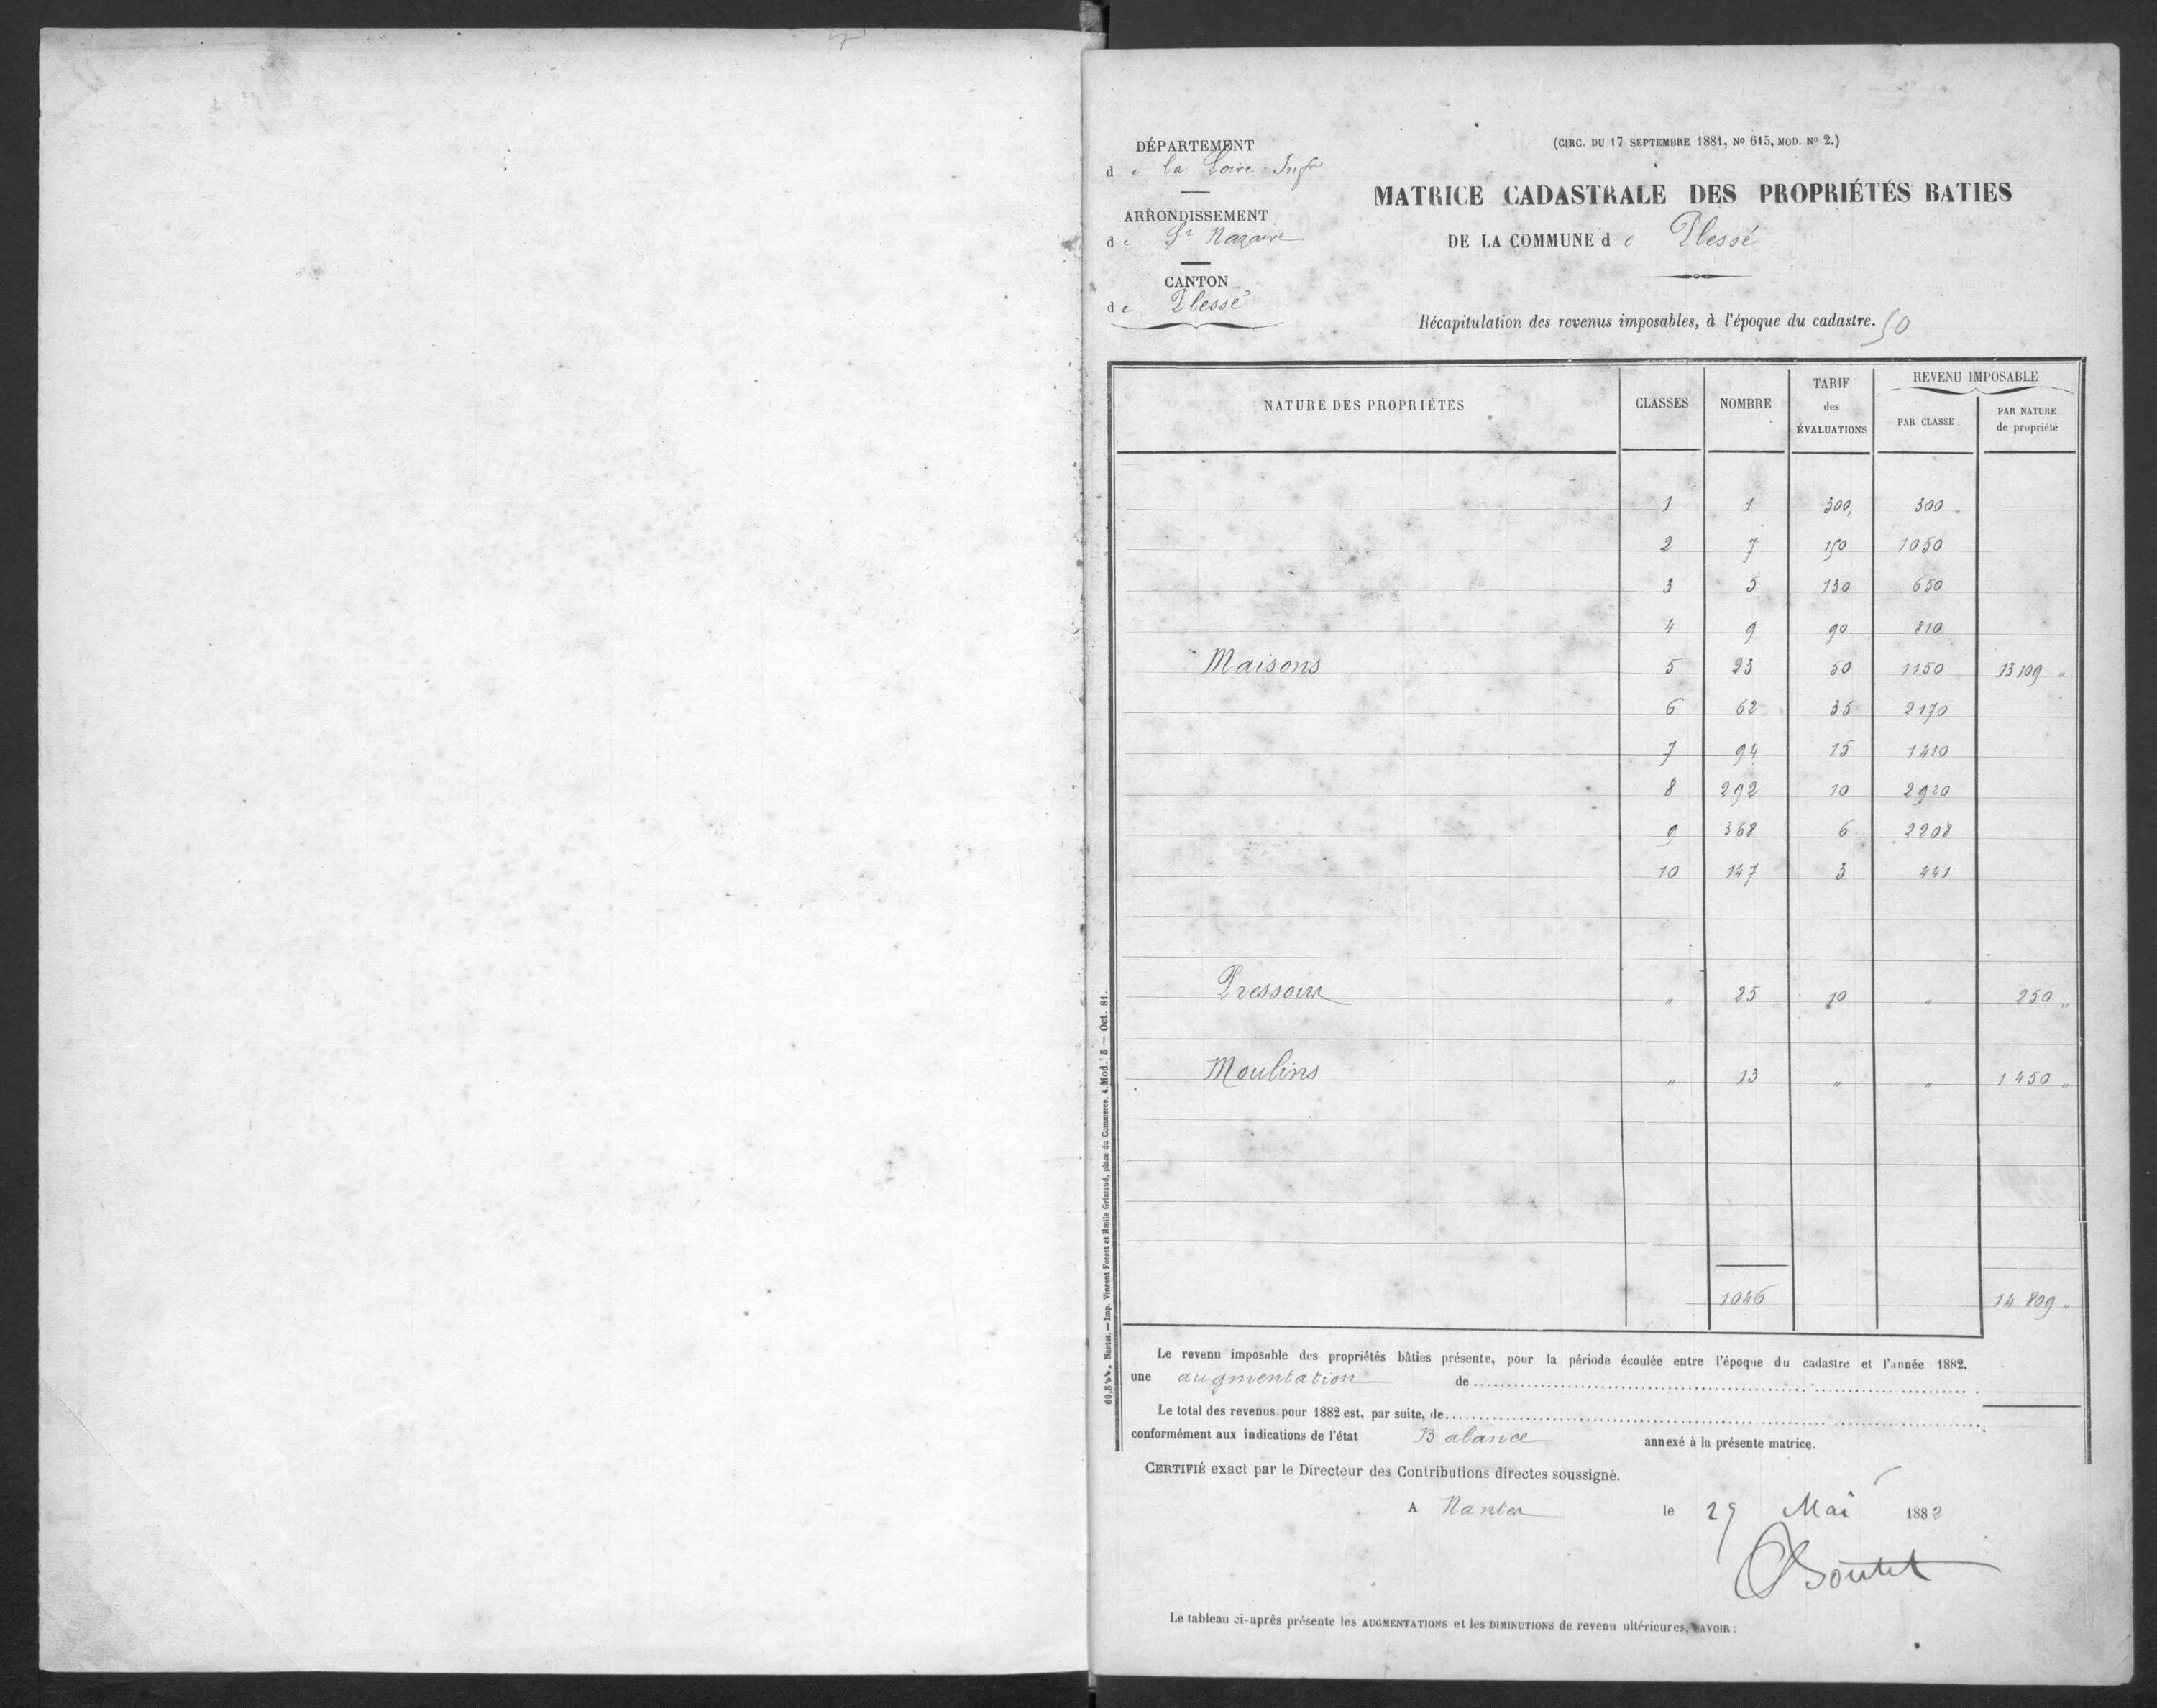 DÉPARTEMENT
de la Loire-Infre
ARRONDISSEMENT
de St Nazaire
CANTON
de Plessé
(CIRC. DU 17 SEPTEMBRE 1881, No 615, MOD. No 2.)
MATRICE CADASTRALE DES PROPRIÉTÉS BATIES
DE LA COMMUNE de Plessé
Récapitulation des revenus imposables, à l'époque du cadastre. 50
NATURE DES PROPRIÉTÉS CLASSES NOMBRE TARIF des ÉVALUATIONS REVENU IMPOSABLE PAR CLASSE PAR NATURE de propriété
1 1 300, 300
2 7 150 1050
3 5 130 650
4 9 90 810
Maisons 5 23 50 1150 13109 "
6 62 35 2170
7 94 15 1410
8 292 10 2920
9 368 6 2208
10 147 3 441
Pressoirs " 25 10 " 250 "
Moulins " 13 " " 1450 "
1046 14 809 "
Le revenu imposable des propriétés bâties présente, pour la période écoulée entre l'époque du cadastre et l'année 1882,
une augmentation de
Le total des revenus pour 1882 est, par suite, de
conformément aux indications de l'état Balance annexé à la présente matrice.
CERTIFIÉ exact par le Directeur des Contributions directes soussigné.
A Nantes le 29 Mai 1882
Le tableau ci-après présente les AUGMENTATIONS et les DIMINUTIONS de revenu ultérieures, SAVOIR :
Nantes. — Imp. Vincent Forest et Émile Grimaud, place du Commerce, 4. Mod. 5 — Oct. 81.